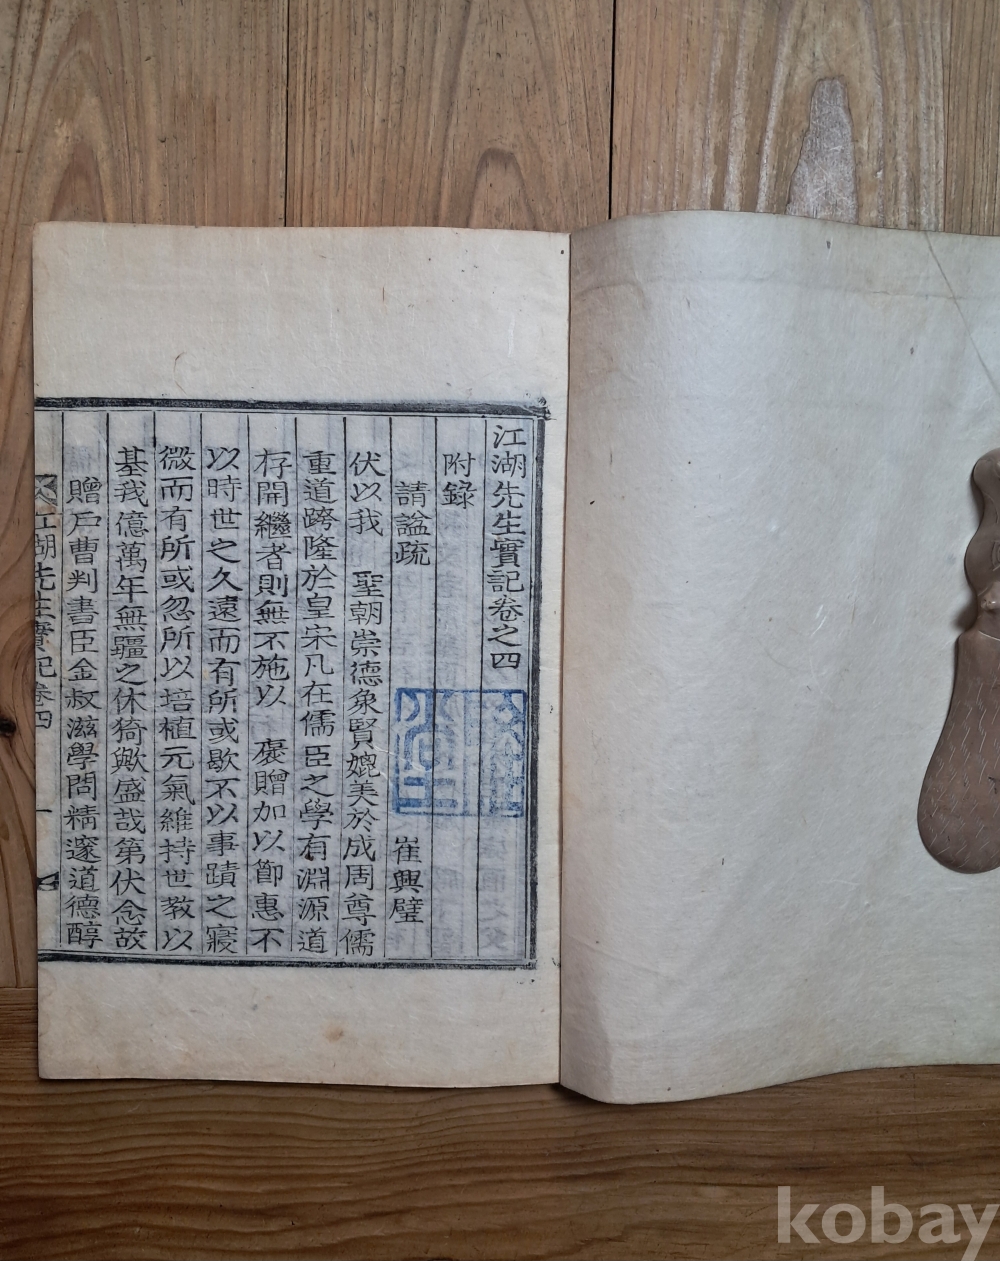 江湖先生實記卷之四
附錄
請諡疏 崔興璧
伏以我 聖朝崇德象賢媲美於成周尊儒
重道跨隆於皇宋凡在儒臣之學有淵源道
存開繼者則無不施以 褒贈加以節惠不
以時世之久遠而有所或歇不以事蹟之寢
微而有所或忽所以培植元氣維持世教以
基我億萬年無疆之休猗歟盛哉第伏念故
贈戶曹判書臣金叔滋學問精邃道德醇
江湖先生實記卷四 一
kobay